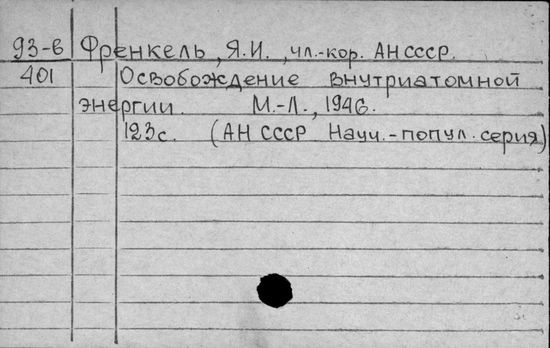 93-6 Френкель, Я.И., чл.-кор. АН СССР.
401 Освобождение внутриатомной
энергии. М.-Л., 1946.
123с. (АН СССР Науч.-попул. серия)